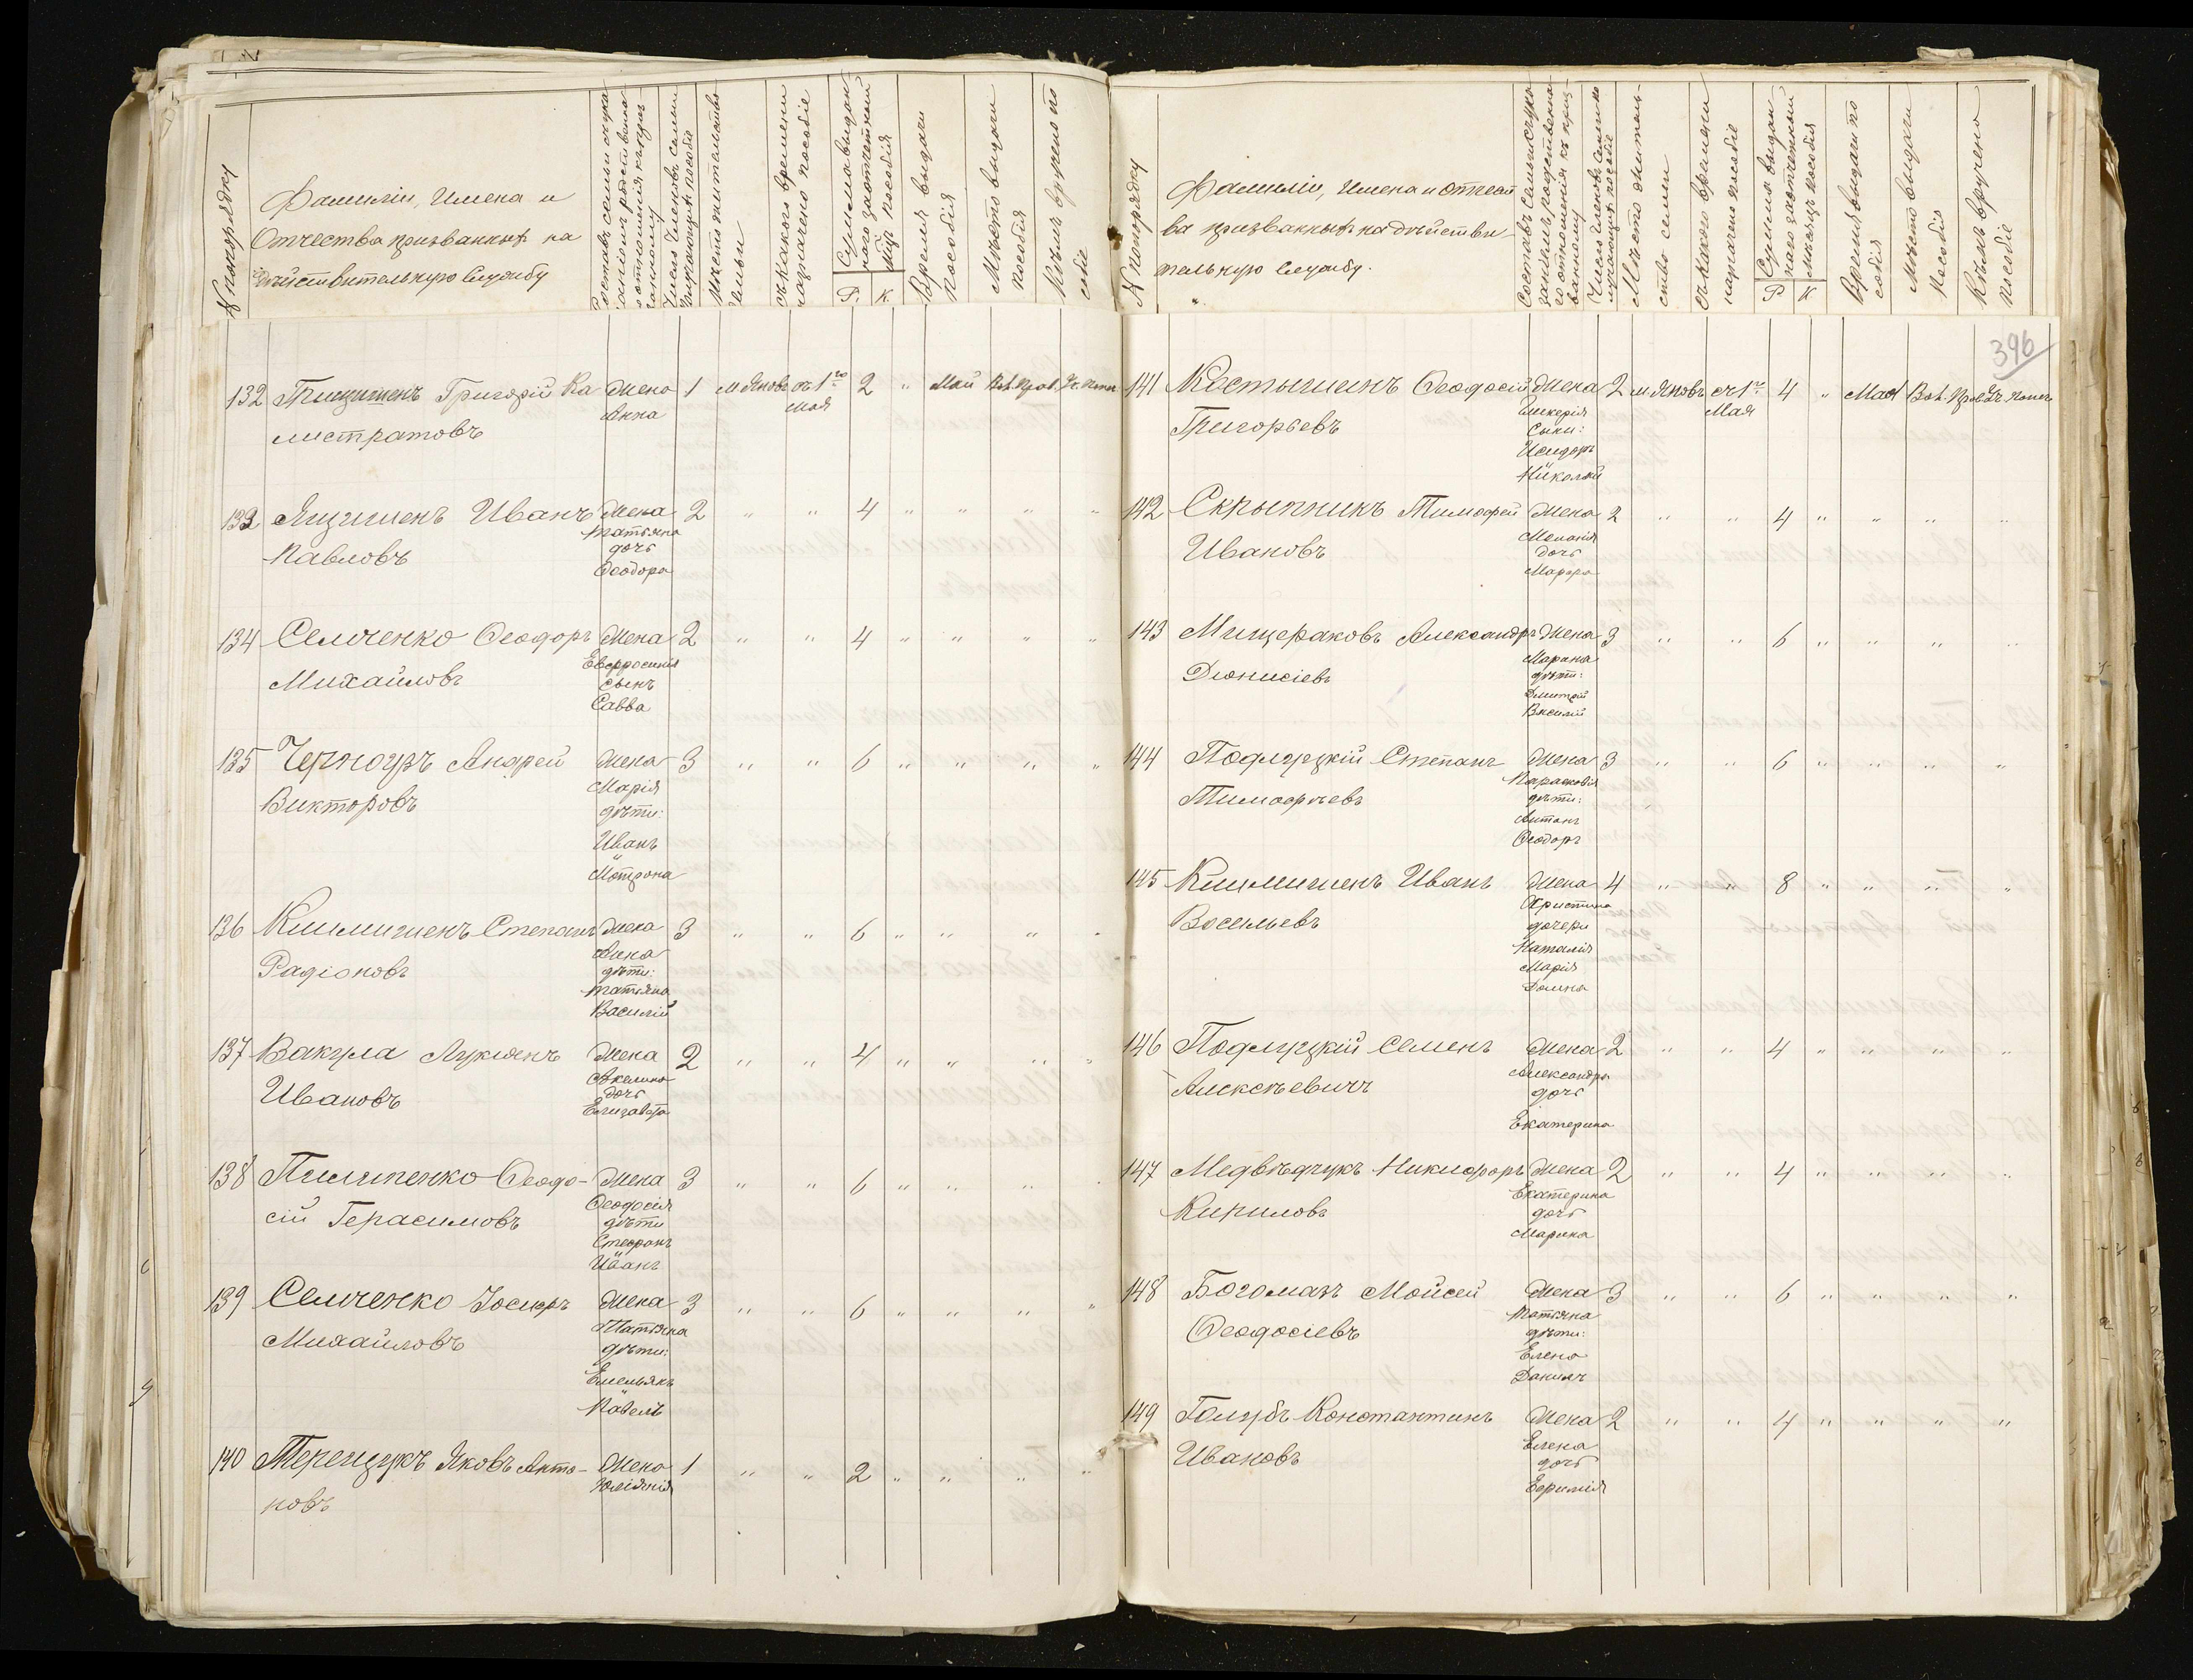 № по порядку
Фамиліи, Имена и
Отчества призванныхъ на
дѣйствительную Службу
Составъ семьи съ указаніемъ родственнаго отношенія къ призванному
Число Членовъ Семьи получающихъ пособіе
Мѣсто жительства семьи
съ какого времени назначено пособіе
Сумма выданнаго пособія
Р. К.
Время выдачи пособія
Мѣсто выдачи пособія
Кѣмъ вручено пособіе
132 Тыщишенъ Григорій Ка- Жена 1 м Яновъ съ 1го 2 " Май Вол. Прав.
листратовъ Анна Мая
133 Ящишенъ Иванъ Жена 2 " " 4 " " " "
Павловъ Татьяна
дочь
Ѳеодора
134 Семченко Ѳеодоръ Жена 2 " " 4 " " " "
Михайловъ Евфросинія
сынъ
Савва
135 Черноузъ Андрей Жена 3 " " 6 " " " "
Викторовъ Марія
дѣти:
Иванъ
Мотрона
136 Климишенъ Степанъ Жена 3 " " 6 " " " "
Радіоновъ Анна
дѣти:
Татьяна
Василій
137 Вакула Лукьянъ Жена 2 " " 4 " " " "
Ивановъ Акелина
дочь
Елизавета
138 Пилипенко Ѳеодо- Жена 3 " " 6 " " " "
сій Герасимовъ Ѳеодосія
дѣти
Стефанъ
Иванъ
139 Семченко Іосифъ Жена 3 " " 6 " " " "
Михайловъ Татьяна
дѣти:
Емельянъ
Павелъ
140 Терещукъ Яковъ Анто- Жена 1 " " 2 " " " "
новъ Юліянія
№ по порядку
Фамиліи, Имена и Отчест
ва призванныхъ на дѣйстви-
тельную Службу.
Составъ Семьи съ указаніемъ родственнаго отношенія къ призванному
Число Членовъ Семьи получающихъ пособіе
Мѣсто жительство семьи
съ какого времени назначено пособіе
Сумма выданнаго пособія
Р К
Время выдачи пособія
Мѣсто выдачи пособія
Кѣмъ вручено пособіе
396
141 Костышенъ Ѳеодосій Жена 2 м. Яновъ съ 1го 4 " Мая Вол. Прав.
Григорьевъ Гликерія Мая
Сыны:
Исидоръ
Николай
142 Скрыпникъ Тимофей Жена 2 " " 4 " " " "
Ивановъ Меланія
дочь
Марфа
143 Мищераковъ Александръ Жена 3 " " 6 " " " "
Діонисіевъ Марина
дѣти:
Дмитрій
Василій
144 Подлуцкій Степанъ Жена 3 " " 6 " " " "
Тимофѣевъ Параскевія
дѣти:
Антонъ
Ѳеодоръ
145 Климишенъ Иванъ Жена 4 " " 8 " " " "
Васильевъ Христина
дочери
Наталія
Марія
Домна
146 Подлуцкій Семенъ Жена 2 " " 4 " " " "
Алексѣевичъ Александра
дочь
Екатерина
147 Медвѣдчукъ Никифоръ Жена 2 " " 4 " " " "
Кириловъ Екатерина
дочь
Марина
148 Богоманъ Мойсей Жена 3 " " 6 " " " "
Ѳеодосіевъ Татьяна
дѣти:
Елена
Данилъ
149 Голубъ Константинъ Жена 2 " " 4 " " " "
Ивановъ Елена
дочь
Ефимія